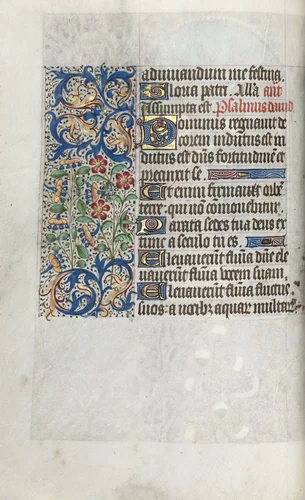 adiuuandum me festina.
Gloria patri. Alla ant
Assumpta est. Psalmus dauid
Dominus regnauit de
corem indutus est in
dutus est dñs fortitudinē et
precinxit se
Et enim firmauit orbē
terre: qui nō cōmouebitur.
Parata sedes tua deus ex
tunc a seculo tu es.
Eleuauerūt flūīa dñe ele
uauerūt flūīa vocem suam.
Eleuauerūt flūīa fluctus
suos: a vocibz aquar multar